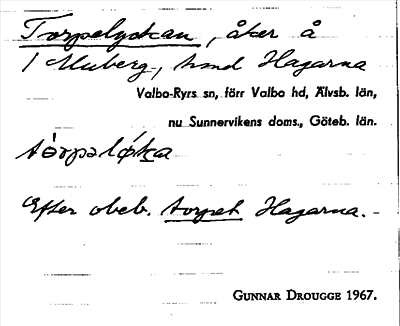 Torpelyckan, åker å
1 Muberg, hmd Hagarna
Valbo-Ryrs sn, förr Valbo hd, Älvsb. län,
nu Sunnervikens doms., Göteb. län.
tòrpəlø̀ka
Efter obeb. torpet Hagarna.
GUNNAR DROUGGE 1967.